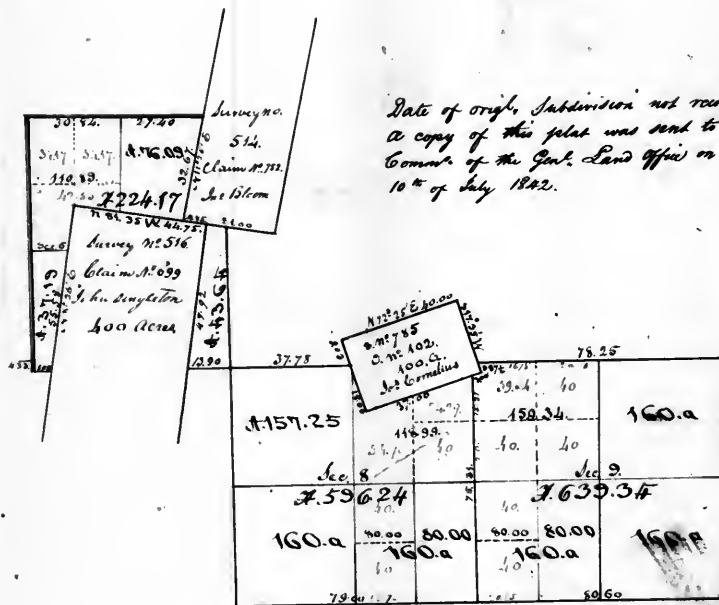 Date of origl. Subdivision not
a copy of this plat was sent to
Commr. of the Genl. Land Office on
10th of July 1842.
Survey no.
514.
Claim No. 782.
Jno Bloom
30.84.
27.40
A.76.09
110.89
A.224.17
32.67
N 81.35 W. 44.75.
21.00
Survey No. 516
Claim No. 099
John Singleton
400 Acres
Sec. 6
A.37.19
47.92
A.43.64
13.90
N 72° 25 E. 40.00
S. no. 785
O. no. 102.
100. a.
Jos. Cornelius
37.78
78.25
A.157.25
118.99
39.04
40
159.34
160.a
40
40.
40
Sec. 8
Sec. 9.
A.596.24
A.639.34
160.a
80.00
80.00
160.a
80.00
80.00
160.a
160.a
40.
40
40.
40
79.00
80.60